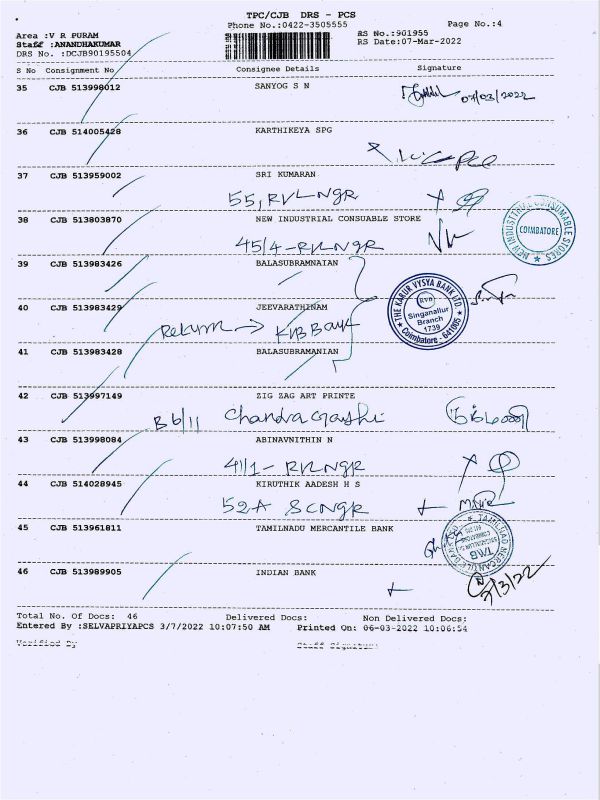 TPC/CJB DRS - PCS
Phone No.:0422-3505555
Page No.:4
Area :V R PURAM
RS No.:901955
Staff :ANANDHAKUMAR
RS Date:07-Mar-2022
DRS No. :DCJB90195504
S No Consignment No Consignee Details Signature
35 CJB 513998012 SANYOG S N
07/03/2022
36 CJB 514005428 KARTHIKEYA SPG
37 CJB 513959002 SRI KUMARAN
55, RVLNGR
38 CJB 513803870 NEW INDUSTRIAL CONSUABLE STORE
NEW INDUSTRIAL CONSUMABLE STORES
COIMBATORE
45/4-RVLNGR
39 CJB 513983426 BALASUBRAMNAIAN
THE KARUR VYSYA BANK LTD.
KVB
Singanallur
Branch
1739
Coimbatore - 641005
40 CJB 513983429 JEEVARATHINAM
Return → KVB Bank
41 CJB 513983428 BALASUBRAMANIAN
42 CJB 513997149 ZIG ZAG ART PRINTE
B 6/11
43 CJB 513998084 ABINAVNITHIN N
41/1-RVLNGR
44 CJB 514028945 KIRUTHIK AADESH H S
52A SCNGR
45 CJB 513961811 TAMILNADU MERCANTILE BANK
TAMILNAD MERCANTILE BANK
TMB
46 CJB 513989905 INDIAN BANK
7/3/22
Total No. Of Docs: 46 Delivered Docs: Non Delivered Docs:
Entered By :SELVAPRIYAPCS 3/7/2022 10:07:50 AM Printed On: 06-03-2022 10:06:54
Verified By Staff Signature